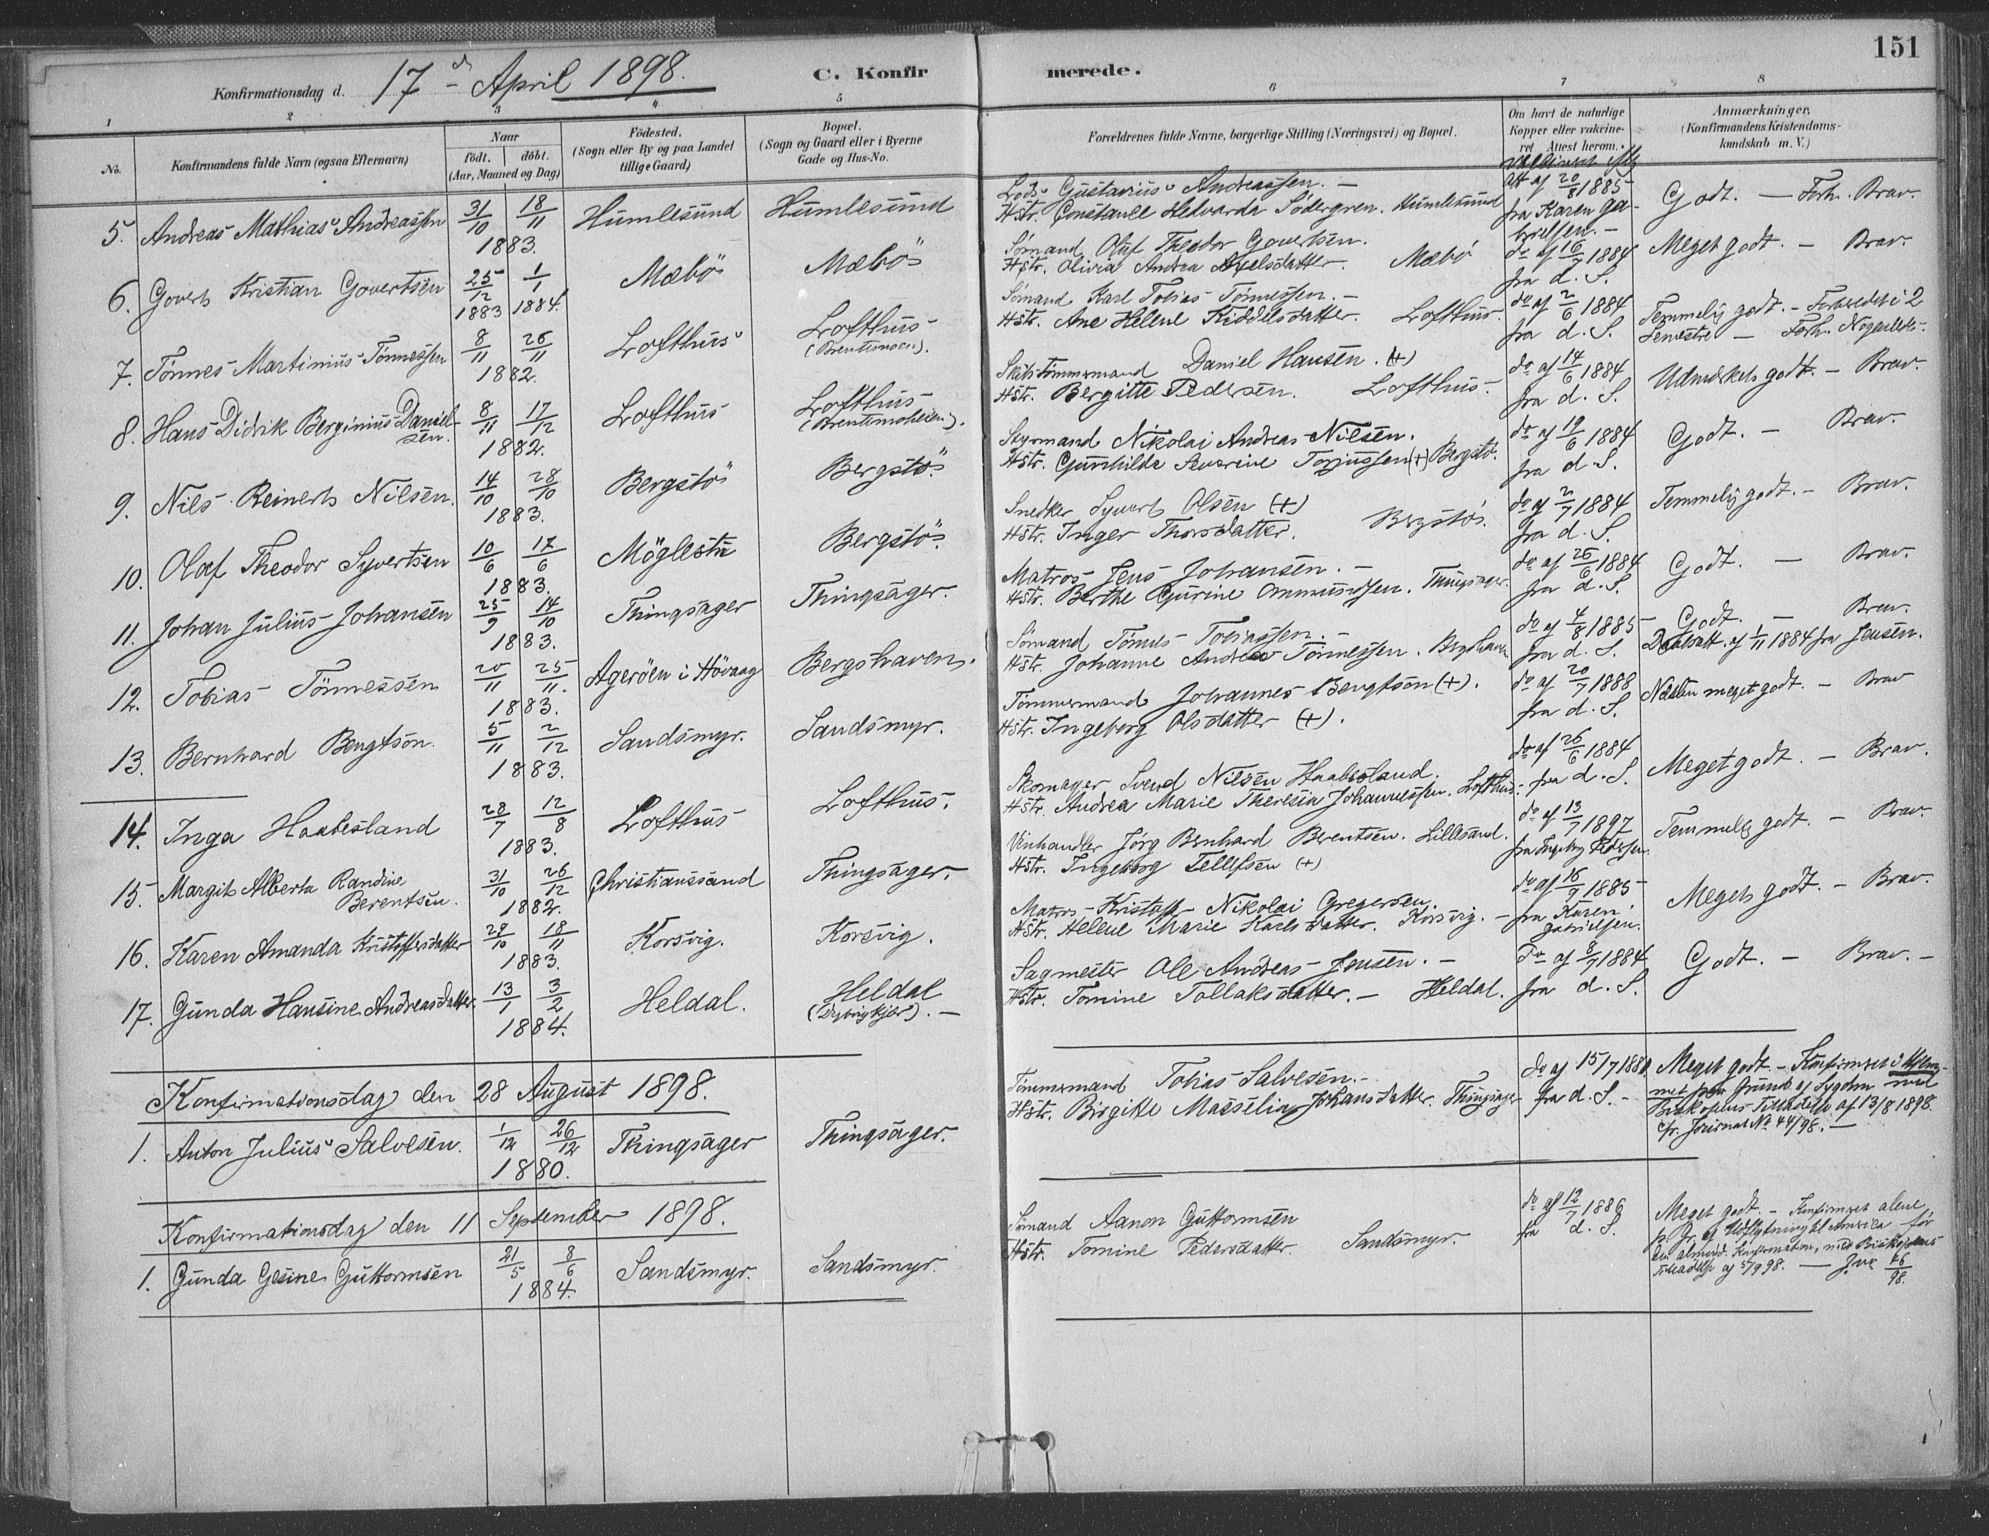 151
C. Konfirmerede.
Konfirmationsdag d. 17de April 1898.
1 2 3 4 5 6 7 8
No.
Konfirmandens fulde Navn (ogsaa Efternavn)
Naar
födt. döbt.
(Aar, Maaned og Dag)
Födested.
(Sogn eller By og paa Landet
tillige Gaard)
Bopæl.
(Sogn og Gaard eller i Byerne
Gade og Hus-No.
Forældrenes fulde Navne, borgerlige Stilling (Næringsvei) og Bopæl.
Om havt de naturlige
Kopper eller vakcine-
ret. Attest herom.
Anmærkninger.
(Konfirmandens Kristendoms-
kundskab m. V.)
5. Andreas Mathias Andreassen 31/10 18/11 1883. Humlesund Humlesund
Lods Gustavius Andreassen. —
Hstr. Constance Hedvarda Södergren. Humlesund
Att af 20/8 1885 fra Karen Gabrielsen. —
Godt. — Forh. Brav.
6. Govert Kristian Govertsen 25/12 1883 1/1 1884. Mæbö Mæbö
Sömand Olaf Theodor Govertsen.
Hstr. Olivia Andrea Axelsdatter. Mæbö
do af 16/7 1884 fra d. S.
Meget godt. — Brav.
7. Tönnes Martinius Tönnessen 8/11 26/11 1882. Lofthus Lofthus (Brentemoen).
Sömand Karl Tobias Tönnessen. —
Hstr. Ane Helene Kiddelsdatter. Lofthus.
do af 2/6 1884 fra d. S.
Temmelig godt. — Forberedet i 2
Semestre — Forh. Nogenledes.
8. Hans Didrik Berginius Danielsen. 8/11 17/12 1882. Lofthus Lofthus (Brentemoheien).
Skibstömmermand Daniel Hansen. (+)
Hstr. Bergitte Pedersen. Lofthus.
do af 14/6 1884 fra d. S.
Udmærket godt. — Brav.
9. Nils Reinert Nilsen. 14/10 28/10 1883. Bergstö Bergstö.
Styrmand Nikolai Andreas Nilsen.
Hstr. Gunhilde Severine Torjussen (+) Bergstö.
do af 19/6 1884 fra d. S.
Godt. — Brav.
10. Olaf Theodor Syvertsen 10/6 17/6 1883. Möglestu Bergstö.
Snedker Syvert Olsen (+)
Hstr. Inger Thorsdatter. Bergstö.
do af 2/7 1884 fra d. S.
Temmelig godt. — Brav.
11. Johan Julius Johansen 25/9 14/10 1883. Thingsager Thingsager.
Matros Jens Johansen. —
Hstr. Berthe Gurine Ommundsen. Thingsager.
do af 26/6 1884 fra d. S.
Godt. — Brav.
12. Tobias Tönnessen 20/11 25/11. 1883. Agerøen i Hövaag Bergshaven.
Sömand Tönnes Tobiassen. —
Hstr. Johanne Andrea Tönnessen. Bergshaven
do af 4/8 1885 fra d. S.
Godt. — Brav.
Dobsatt. af 1/11 1884 fra Jensen.
13. Bernhard Bengtson. 5/11 2/12 1883. Sandsmyr. Sandsmyr.
Tömmermand Johannes Bengtson (+).
Hstr. Ingeborg Olsdatter (+).
do af 20/7 1888 fra d. S.
Næsten meget godt. — Brav
14. Inga Haabesland 28/7 12/8 1883. Lofthus Lofthus.
Skomager Svend Nilsen Haabesland.
Hstr. Andrea Marie Theresia Johannessen. Lofthus.
do af 26/6 1884 fra d. S.
Meget godt. — Brav.
15. Margit Alberta Randine Berentsen. 31/10 26/12 1882. Christianssand Thingsager.
Vinhandler Jörg Bernhard Berentsen. Lillesand.
Hstr. Ingeborg Tellefsen (+)
do af 13/7 1897 fra Ingeborg Pedersen.
Temmelig godt. — Brav.
16. Karen Amanda Kristoffersdatter 29/10 18/11 1883. Korsvig. Korsvig.
Matros Kristoff. Nikolai Gregersen.
Hstr. Helene Marie Karlsdatter. Korsvig. —
do af 16/9 1885 fra Karen Gabrielsen.
Meget godt. — Brav.
17. Gunda Hansine Andreasdatter 13/1 3/2 1884. Heldal. Heldal (Dybvigkjær). —
Sagmester Ole Andreas Jensen. —
Hstr. Tomine Tollaksdatter. — Heldal.
Do af 8/7 1884 fra d. S.
Godt. — Brav. —
Konfirmationsdag den 28 August 1898.
1. Anton Julius Salvesen. 1/12 26/12 1880. Thingsager Thingsager.
Tömmermand Tobias Salvesen. —
Hstr. Birgitte Masselia Johansdatter. Thingsager
do af 15/7 1881 fra d. S. —
Meget godt. — Konfirmeret i Hjem-
met paa Grund af Sygdom med
Biskopens Tilladelse af 13/8 1898.
cfr. Journal No. 44/98. —
Konfirmationsdag den 11 September 1898.
1. Gunda Gesine Guttormsen 21/5 8/6 1884. Sandsmyr. Sandsmyr.
Sömand Aanon Guttormsen
Hstr. Tomine Pedersdatter. Sandsmyr.
do af 12/7 1886 fra d. S.
Meget godt. — Konfirmeret alene
p. Gr. af Udflytning til Amerika — för
den almind. Konfirmation, med Biskopens
Tilladelse af 5/9 98. — Jrnr 46/98.